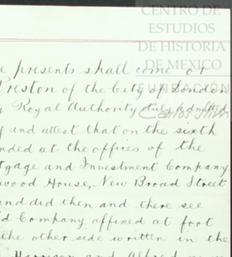 CENTRO DE
ESTUDIOS
DE HISTORIA
DE MEXICO
e presents shall come or
Preston of the City of London
y Royal Authority duly admitted
y and attest that on the sixth
nded at the offices of the
tgage and Investment Company
wood House, New Broad Street
and did then and there see
d Company affixed at foot
the other side written in the
Harrison and Alfred